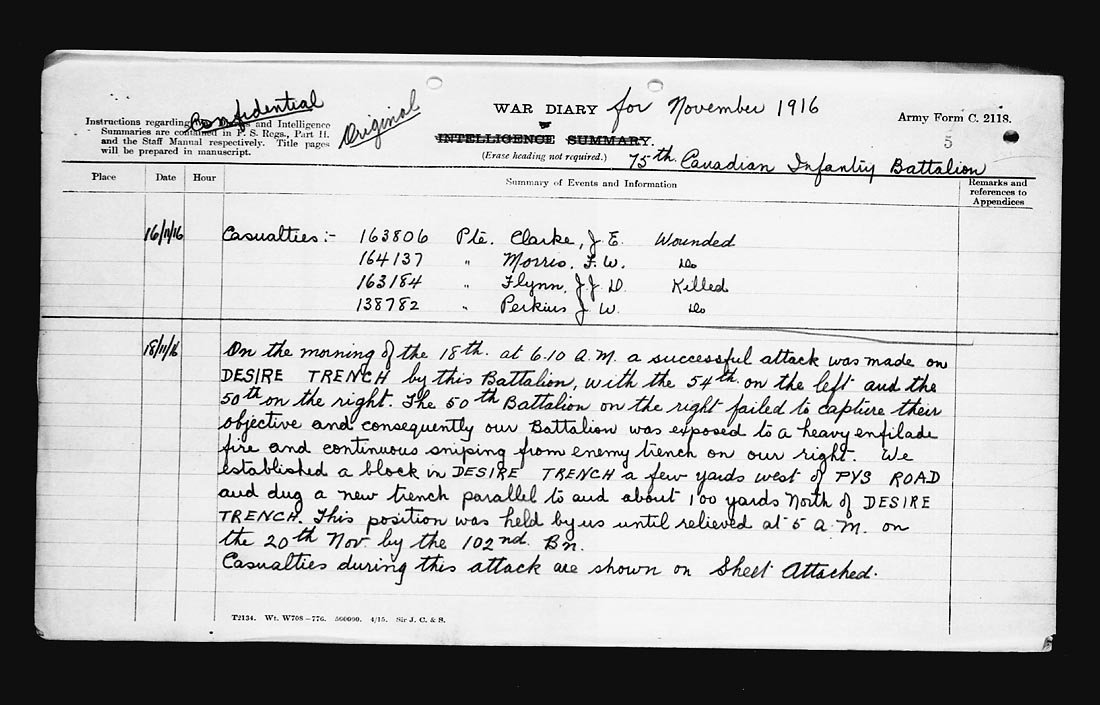 Confidential
Original
Instructions regarding War Diaries and Intelligence
Summaries are contained in F. S. Regs., Part II.
and the Staff Manual respectively. Title pages
will be prepared in manuscript.
WAR DIARY for November 1916
or
INTELLIGENCE SUMMARY.
(Erase heading not required.) 75th Canadian Infantry Battalion
Army Form C. 2118.
5
Place Date Hour Summary of Events and Information Remarks and
references to
Appendices
16/11/16 Casualties:- 163806 Pte. Clarke, J. E. Wounded
164137 " Morris, F. W. Do
163184 " Flynn, J. J. D. Killed
138782 " Perkins J. W. Do
18/11/16 On the morning of the 18th. at 6.10 A.M. a successful attack was made on
DESIRE TRENCH by this Battalion, with the 54th on the left and the
50th on the right. The 50th Battalion on the right failed to capture their
objective and consequently our Battalion was exposed to a heavy enfilade
fire and continuous sniping from enemy trench on our right. We
established a block in DESIRE TRENCH a few yards west of PYS ROAD
and dug a new trench parallel to and about 100 yards North of DESIRE
TRENCH. This position was held by us until relieved at 5 A.M. on
the 20th Nov. by the 102nd. Bn.
Casualties during this attack are shown on Sheet Attached.
T2134. Wt. W708—776. 500000. 4/15. Sir J. C. & S.